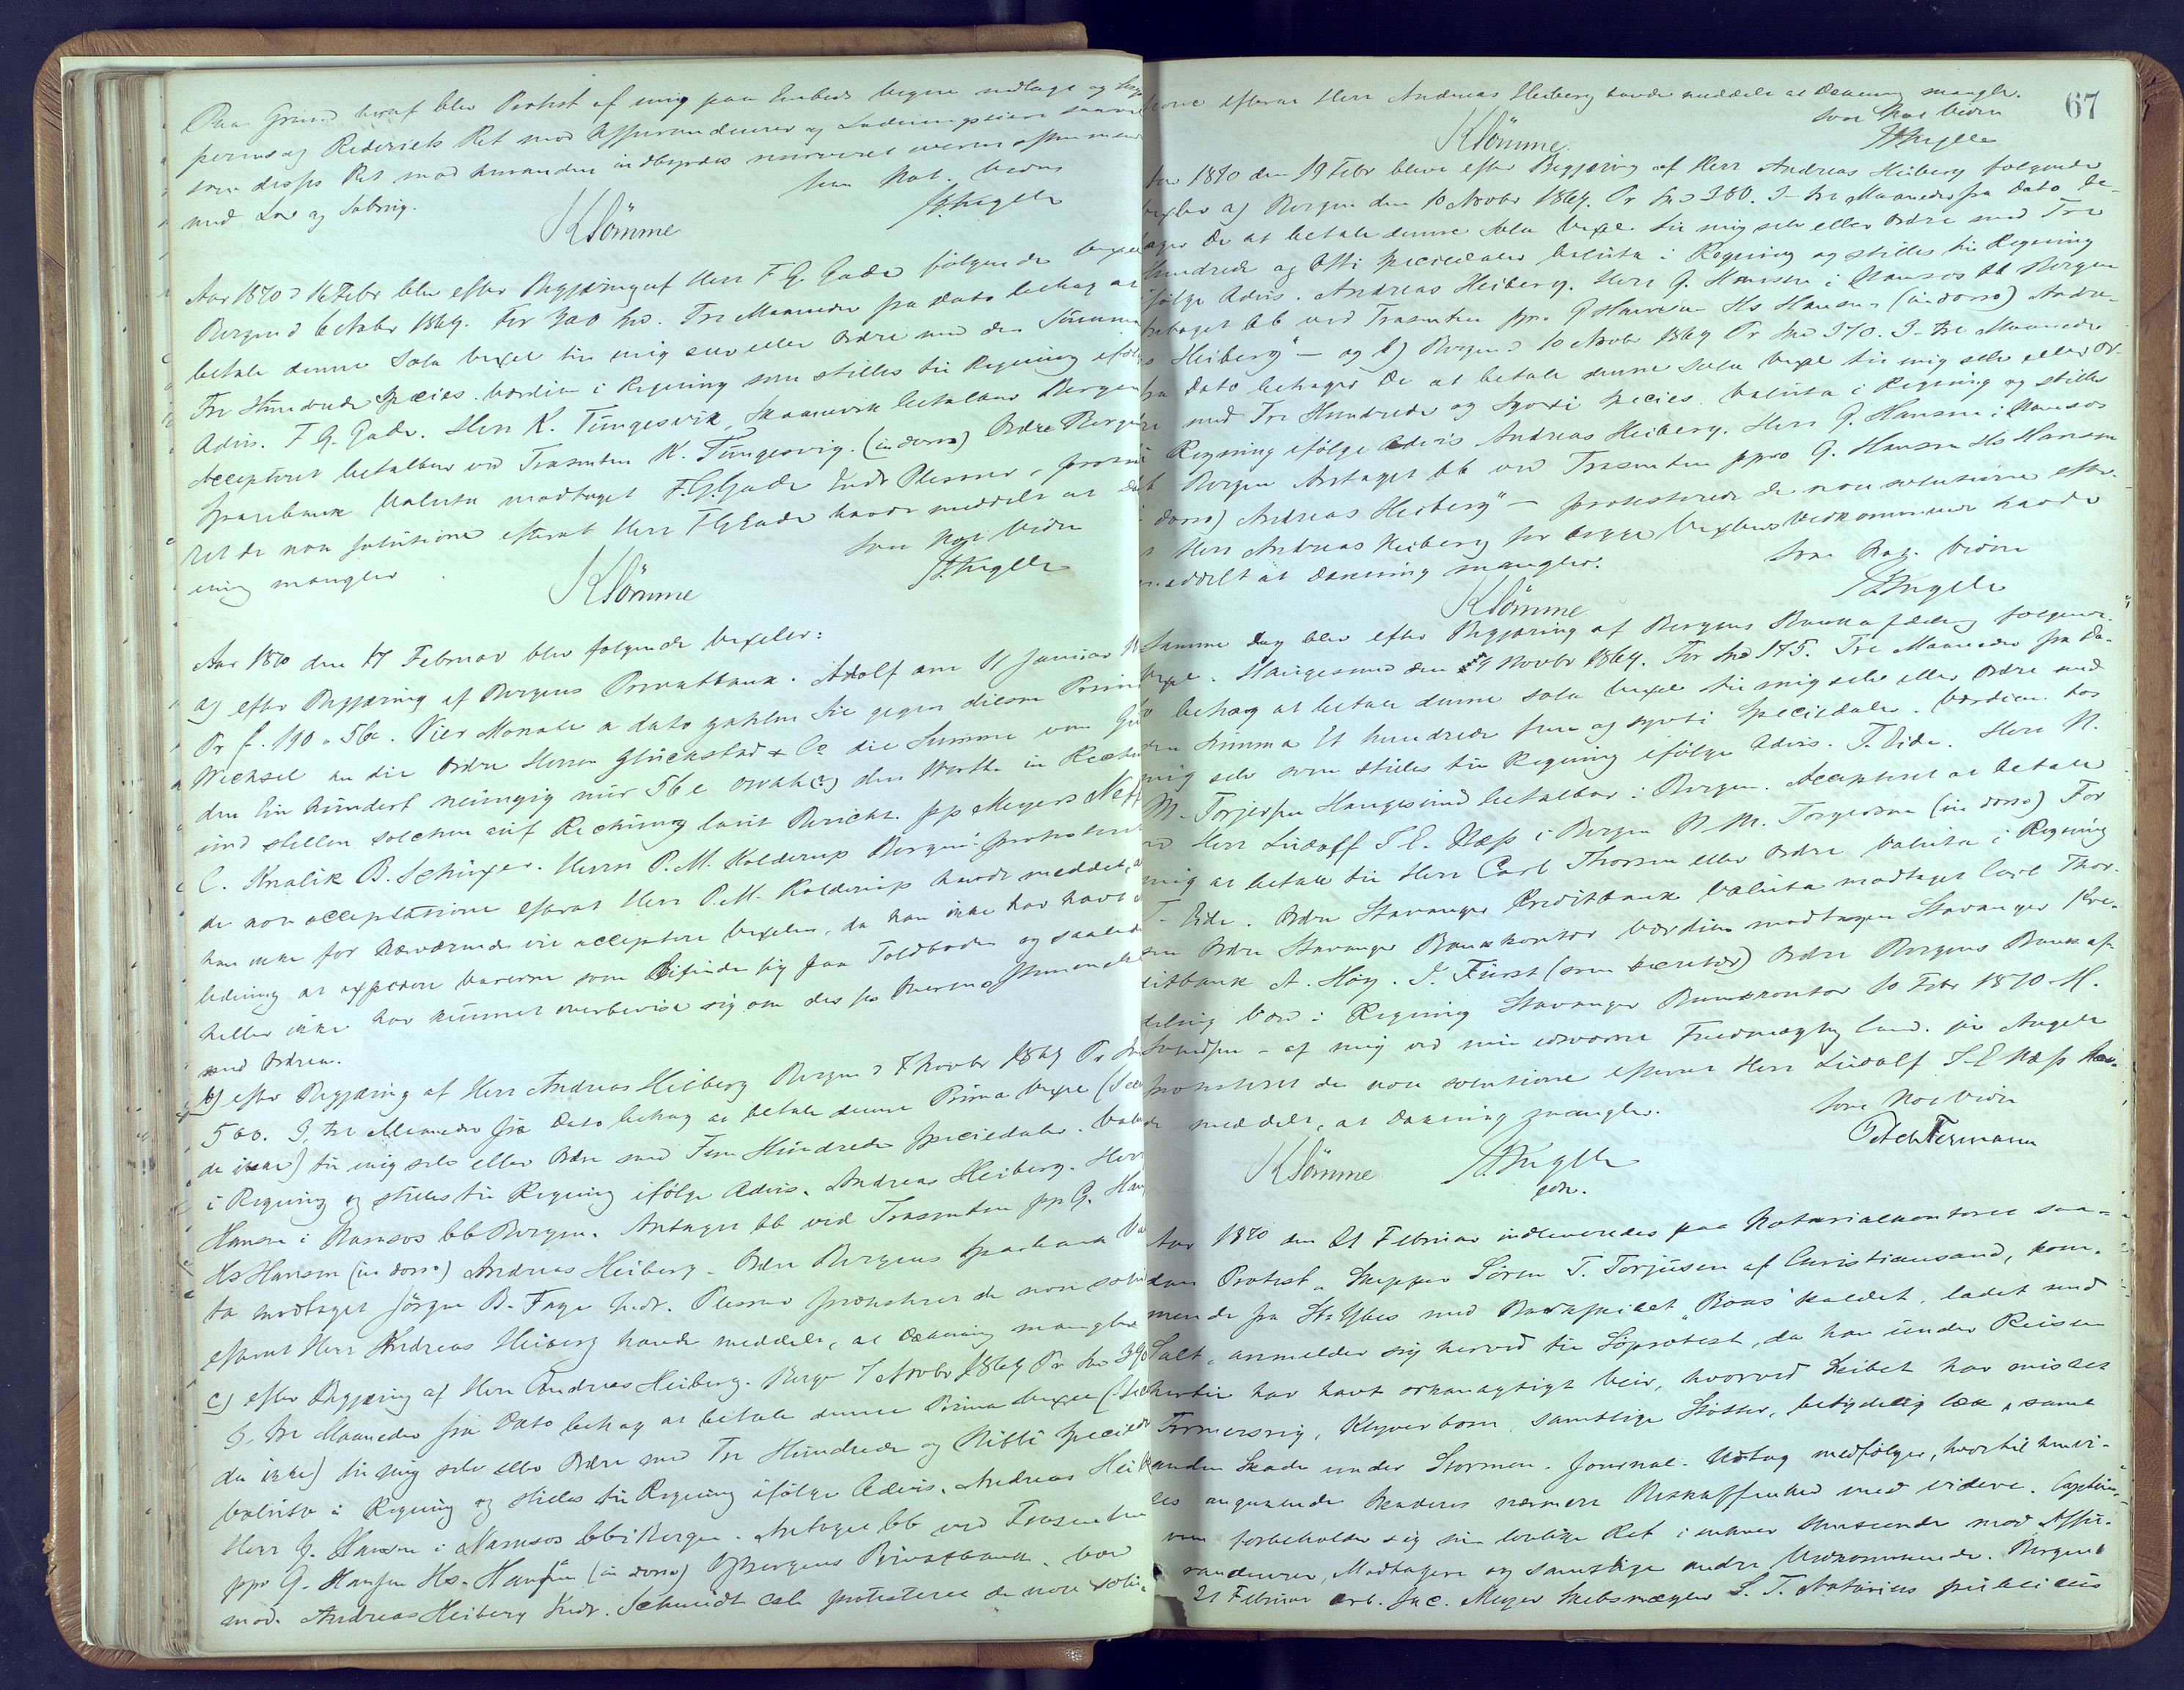 Paa Grund heraf blev Protest af mig paa Embeds vegne nedlagt og
perens og Rederiets Ret mod Assurandeurer og Ladningseiere samt
disses Ret mod hverandre indbyrdes reserveret overensstemmende
med Lov og Sædvane.
som Not. Vidne
KLömme
Aar 1870 d 16 Febr blev efter Begjæring af Herr F. G. Gade følgende Vexel
Bergen d 6 Novbr 1869. For 300 Spd. Tre Maaneder fra Dato behag at
betale denne Sola Vexel til mig selv eller Ordre med den Summa
Tre Hundrede Species. Værdien i Regning som stilles til Regning ifølge
Advis. F. G. Gade. Herr K. Tungesvik, Skaanevik betalbar Bergen
Accepteret betalbar ved Trasenten K. Tungesvig. (in dorso) Ordre Bergens
Sparebank Valuta modtaget F. G. Gade Indr Plesner, proteste-
ret de non solutione efterat Herr F G Gade havde meddelt at Dæk-
ning mangler
som Not Vidne
KLömme
Aar 1870 den 17 Februar blev følgende Vexeler:
a) efter Begjæring af Bergens Privatbank. Adolf am 11 Januar
Pr f. 190 " 56c. Vier Monate a dato zahlen Sie gegen diesen Prima
Wechsel an die Ordre Herren Glückstad & Co die Summe von
den Ein hundert neunzig nur 56 c den Werth in Rechnung
und stellen solchen auf Rechnung laut Bericht. pp Meyer
C. Knalik B. Schinzer. Herrn P. M. Kolderup Bergen protesteret
de non acceptatione efterat Herr P. M. Kolderup havde meddelt, at
han ikke for nærværende vil acceptere Vexelen, da han ikke har havt
ledning at expedere Varerne som befinde sig paa Toldboden og saaledes
heller ikke har kunnet overbevise sig om disses Overensstemmelse
med Ordren.
b) efter Begjæring af Herr Andreas Heiberg Bergen d 8 Novbr 1869 Pr Spd
500. I, tre Maaneder fra Dato behag at betale denne Prima Vexel (Secun-
da ikke) til mig selv eller Ordre med Fem Hundrede Speciedaler. Valuta
i Regning og stilles til Regning ifølge Advis. Andreas Heiberg. Herr
Hansen i Namsos bb Bergen. Antaget bb ved Trasenten pp G. Hansen
Hs Hansen (in dorso) Andreas Heiberg. Ordre Bergens Sparebank Valu-
ta modtaget Jørgen B. Faye Indr. Plesner protesteret de non solutione
efterat Herr Andreas Heiberg havde meddelt, at Dækning mangler
c) efter Begjæring af Herr Andreas Heiberg. Bergen 7 Novbr 1869 Pr Spd 390
I, tre Maaneder fra Dato behag at betale denne Prima Vexel (Secun-
da ikke) til mig selv eller Ordre med Tre Hundrede og Nitti Specied
Valuta i Regning og stilles til Regning ifølge Advis. Andreas Heiberg
Herr G. Hansen i Namsos bb i Bergen. Antaget bb ved Trasenten
ppr G. Hansen Hs. Hansen (in dorso) Bergens Privatbank. Val
mod. Andreas Heiberg Indr. Schmidt protesteret de non solu-
67
tione efterat Herr Andreas Heiberg havde meddelt at Dækning mangler.
som Not Vidne
KLömme
Aar 1870 den 19 Febr bleve efter Begjæring af Herr Andreas Heiberg følgende
Vexler a) Bergen den 10 Novbr 1869. Pr Spd 380. I tre Maaneder fra Dato be-
hager De at betale denne Sola Vexel til mig selv eller Ordre med Tre
hundrede og Otti Speciedaler Valuta i Regning og stilles til Regning
ifølge Advis. Andreas Heiberg. Herr G. Hansen i Namsos bb Bergen
Antaget bb ved Trasenten ppr. G Hansen Hs Hansen (in dorso) Andre-
as Heiberg" — og b) Bergen d 10 Novbr 1869 Pr Spd 370. I tre Maaneder
fra Dato behager De at betale denne Sola Vexel til mig selv eller Or-
dre med Tre Hundrede og Sytti Species. Valuta i Regning og stilles
Regning ifølge Advis Andreas Heiberg. Herr G. Hansen i Namsos
bb Bergen Antaget bb ved Trasenten ppro G. Hansen Hs Hansen
(in dorso) Andreas Heiberg" — protesterede de non solutione efter-
at Herr Andreas Heiberg for begge Vexlers Vedkommende havde
meddelt at Dækning mangler.
som Not. Vidne
KLömme
Samme Dag blev efter Begjæring af Bergens Bankafdeling følgende
Vexel. Haugesund den 7 Novbr 1869. For Spd 175. Tre Maaneder fra Da-
to behag at betale denne sola Vexel til mig selv eller Ordre med
den Summa Et hundrede fem og sytti Speciedaler. Værdien hos
mig selv som stilles til Regning ifølge Advis. T. Eide. Herr N.
M. Torjersen Haugesund betalbar i Bergen. Accepteret at betale
ved Herr Ludolf S E Næss i Bergen N. M. Torgersen (in dorso) For
mig at betale til Herr Carl Thorsen eller Ordre Valuta i Regning
T. Eide. Ordre Stavanger Creditbank Valuta modtaget Carl Thor-
sen Ordre Stavanger Bankkontor Værdien modtagen Stavanger Kre-
ditbank A. Høy. J. Fürst (som Secretær) Ordre Bergens Bankaf-
deling Værd i Regning Stavanger Bankkontor 10 Febr 1870 H.
Svendsen - af mig ved min edsvorne Fuldmægtig cand. jur Angell
protesteret de non solutione efterat Herr Ludolf S. E Næss hav-
de meddelt, at Dækning mangler.
som Not Vidne
KLömme
Aar 1870 den 21 Februar indleveredes paa Notarialkontoret saa-
dan Protest "Skipper Sören T. Torjusen af Christiansand, kom-
mende fra St Ybes med Barkskibet "Boas" kaldet, ladet med
Salt, anmelder sig herved til Söprotest, da han under Reisen
hertil har havt orkanagtigt Veir, hvorved Skibet har mistet
Formersrig, Klyverbom, samtlige Støtter, betydelig læk, samt
anden Skade under Stormen. Journal-Udtog medfølger, hvortil henvi-
ses angaaende Skadens nærmere Beskaffenhed med videre. Captai-
nen forbeholder sig sin lovlige Ret i enhver Henseende mod Assu-
randeurer, Modtagere og samtlige andre Vedkommende. Bergen d
21 Februar Meyer Skibsmægler S. T. Notarius publicus